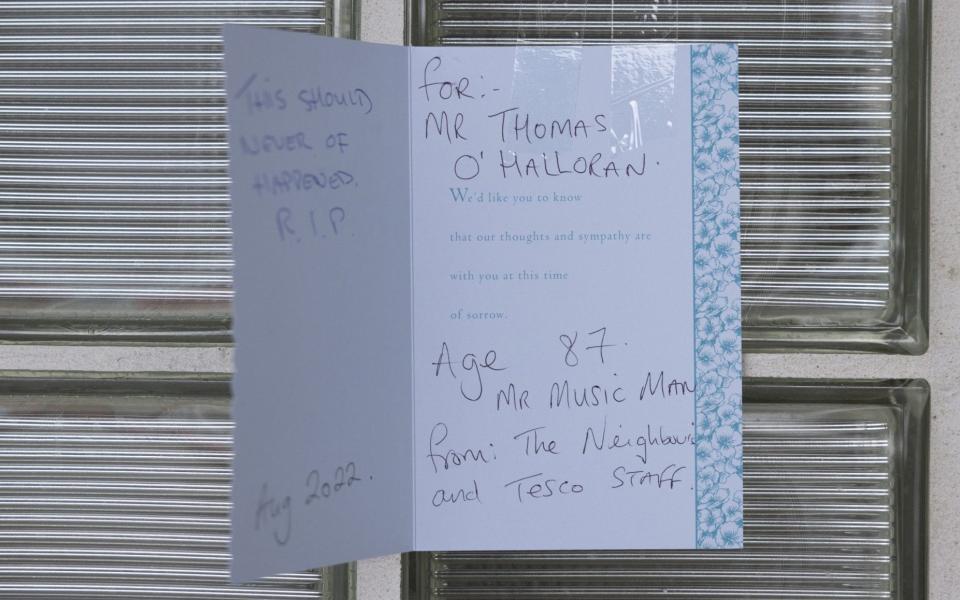 THIS SHOULD
NEVER OF
HAPPENED.
R.I.P.
Aug 2022.
for:-
MR THOMAS
O'HALLORAN.
We'd like you to know
that our thoughts and sympathy are
with you at this time
of sorrow.
Age 87.
MR MUSIC MAN
from: The Neighbours
and TESCO STAFF.